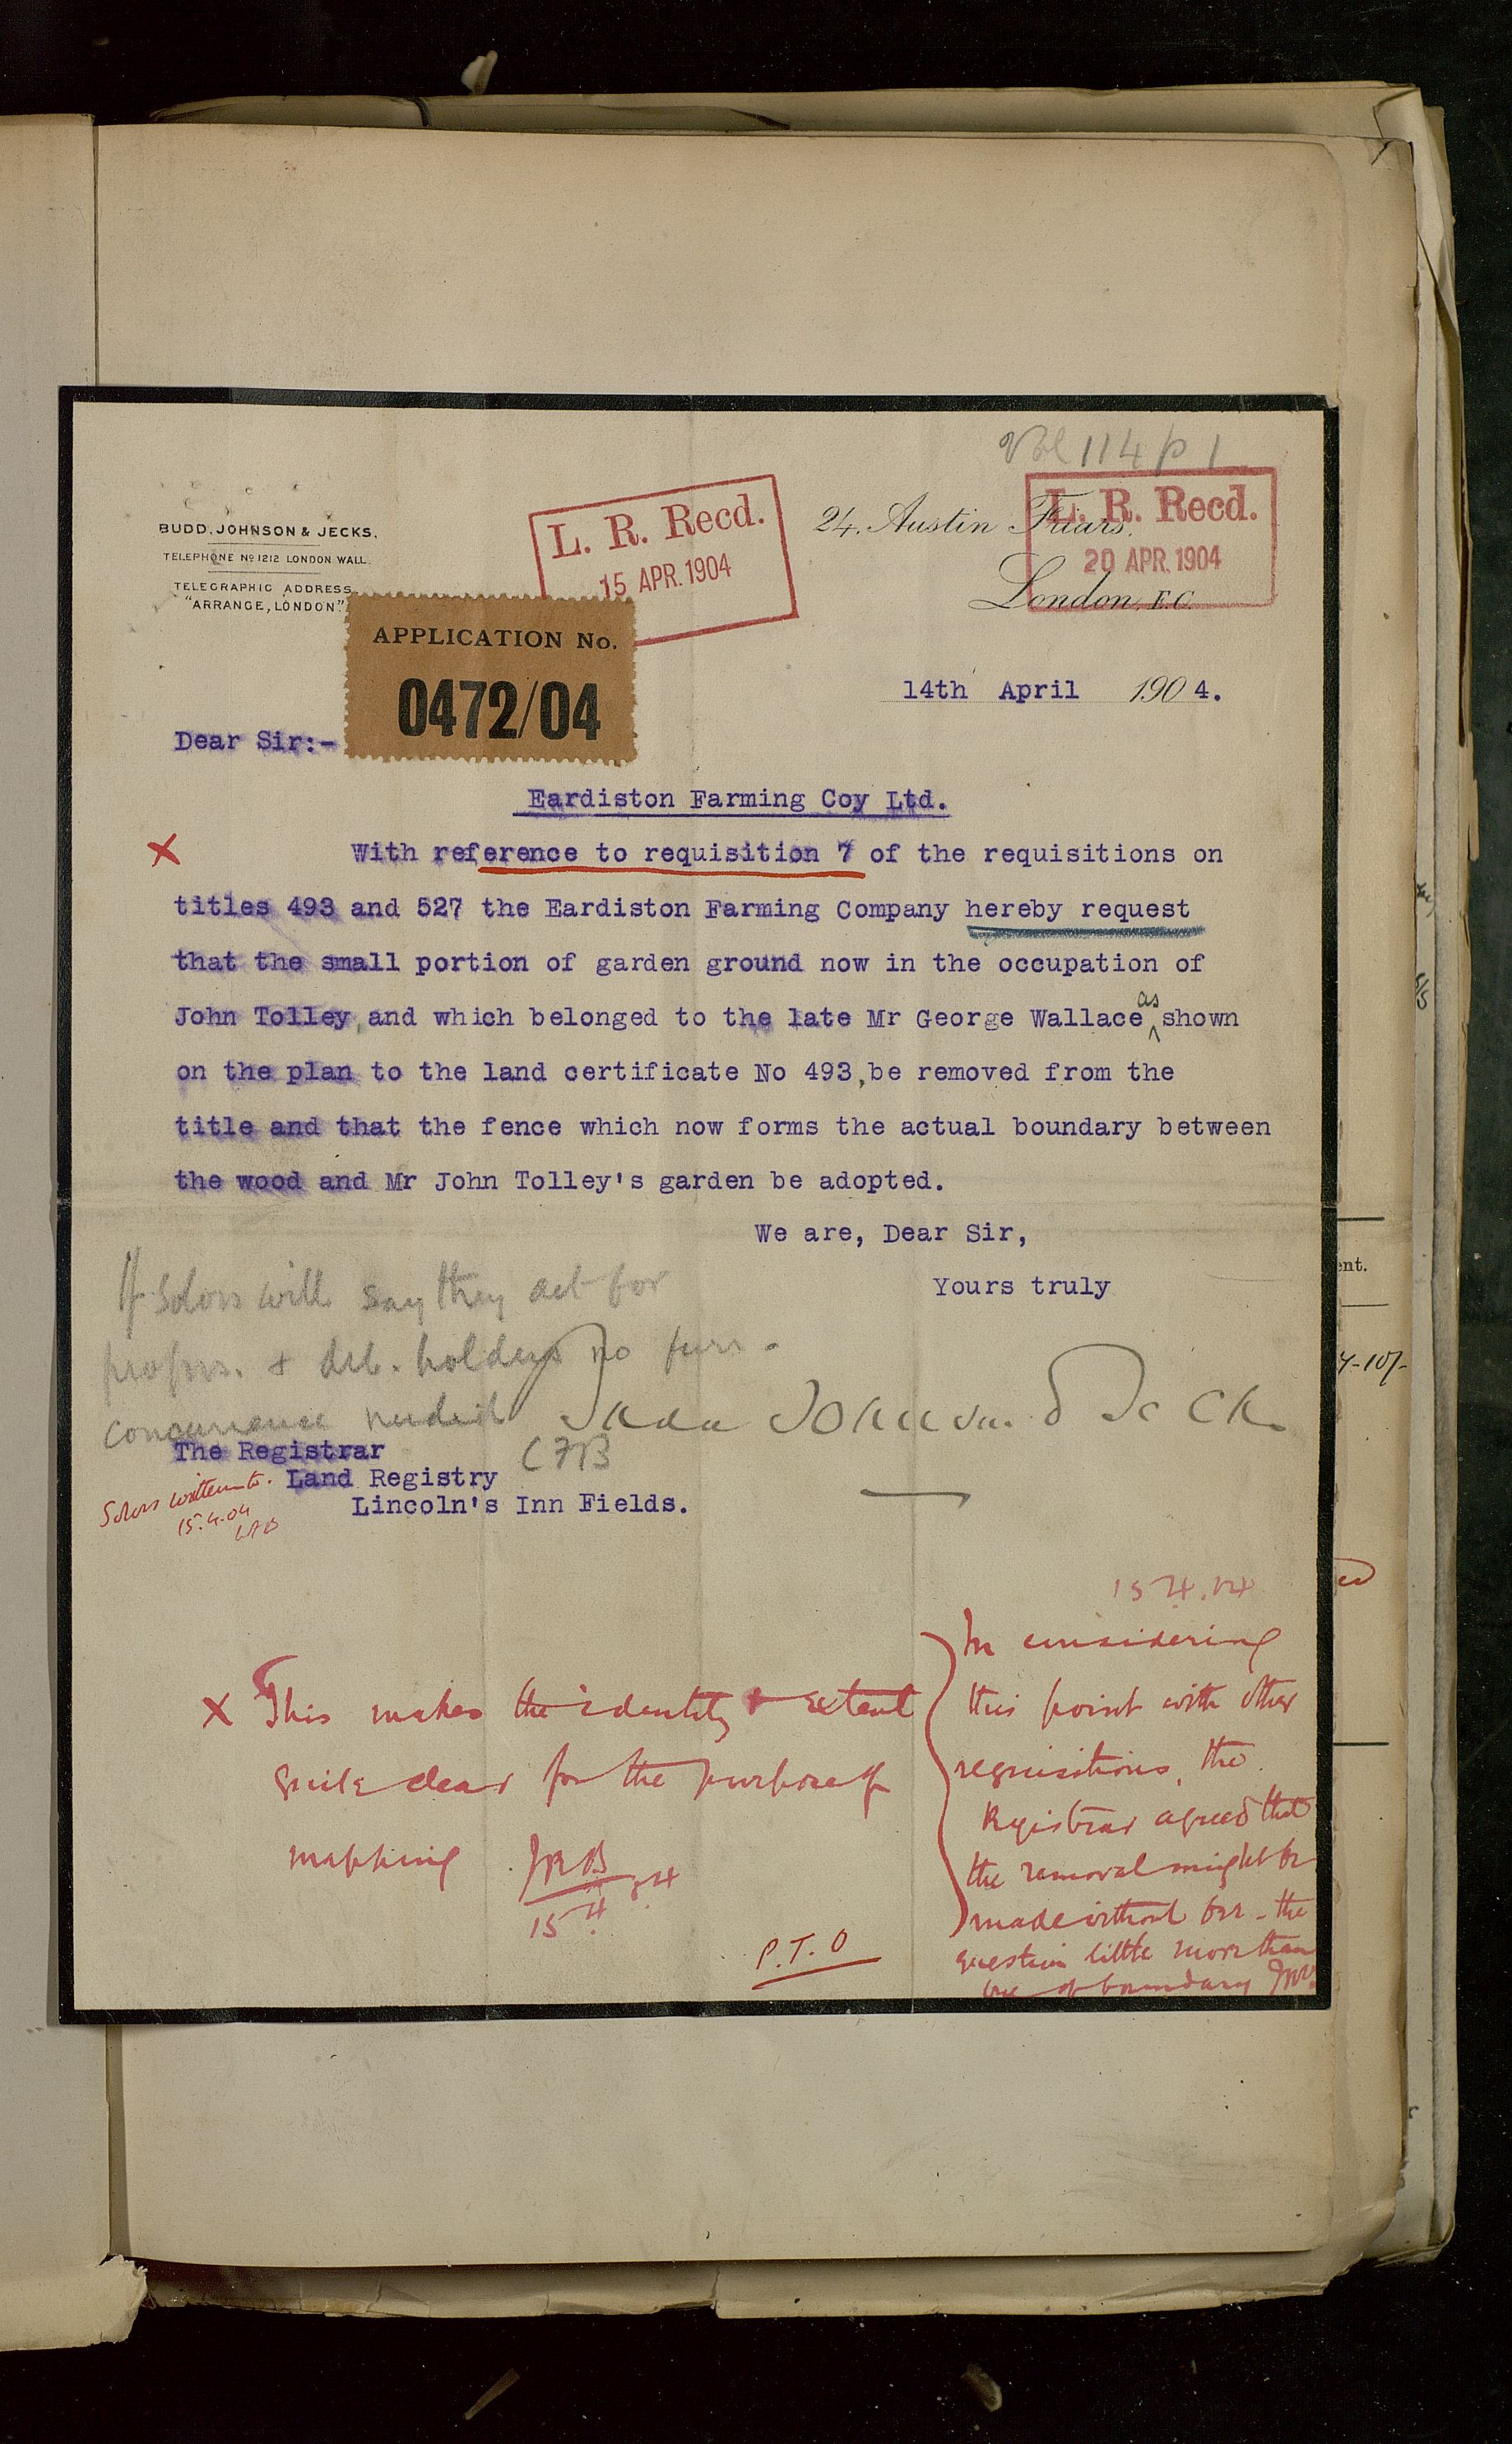 Vol 114 p 1
BUDD, JOHNSON & JECKS.
TELEPHONE No 1212 LONDON WALL.
TELEGRAPHIC ADDRESS
"ARRANGE, LONDON".
L. R. Recd.
15 APR. 1904
24, Austin Friars,
London, E.C.
L. R. Recd.
20 APR. 1904
APPLICATION No.
0472/04
14th April 1904.
Dear Sir:-
Eardiston Farming Coy Ltd.
X With reference to requisition 7 of the requisitions on
titles 493 and 527 the Eardiston Farming Company hereby request
that the small portion of garden ground now in the occupation of
John Tolley, and which belonged to the late Mr George Wallace as shown
on the plan to the land certificate No 493, be removed from the
title and that the fence which now forms the actual boundary between
the wood and Mr John Tolley's garden be adopted.
We are, Dear Sir,
Yours truly
If Solors will say they act for
propors. & deb. holders no furr.
concurrence needed
CFB
Budd Johnson & Jecks
The Registrar
Land Registry
Lincoln's Inn Fields.
Solors written to.
15.4.04
X This makes the identity & extent
quite clear for the purpose of
mapping JRB
15.4.04
15.4.04
In considering
this point with other
requisitions, the
Registrar agreed that
the removal might be
made without - the
question little more than
one of boundary
P.T.O
ent.